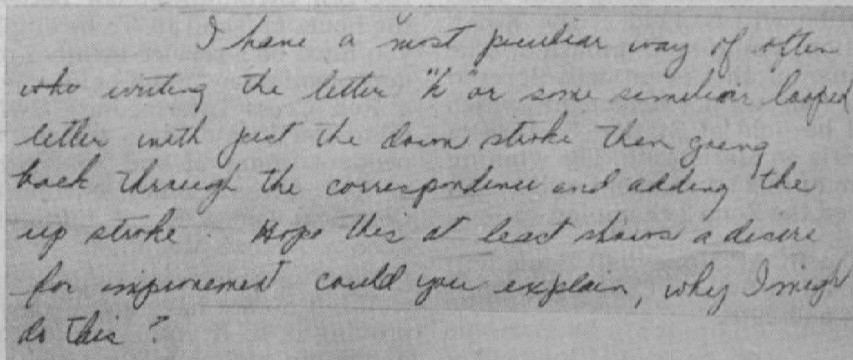 I have a most peculiar way of often
who writing the letter "h" or some similiar looped
letter with just the down stroke then going
back through the correspondence and adding the
up stroke. Hope this at least shows a desire
for improvement could you explain, why I might
do this?